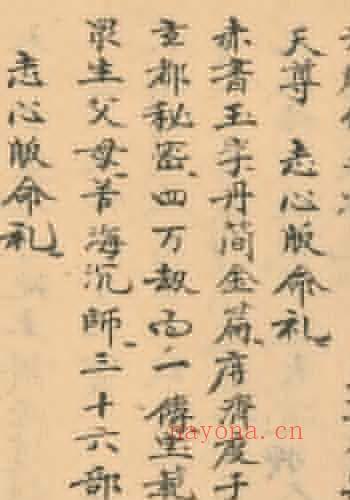 天尊 志心皈命礼
赤書玉字丹简金篇濟度
玄都秘密四万劫而一傳
眾生父母苦海沉師三十六部
志心皈命礼
nayona.cn